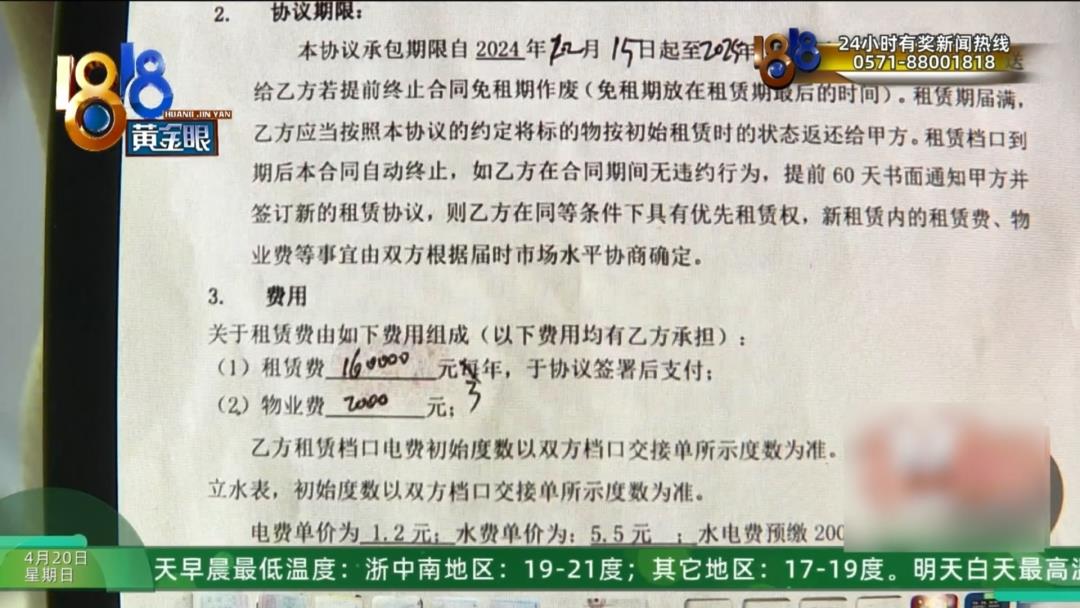 2. 协议期限：
本协议承包期限自 2024 年 12 月 15 日起至
送
给乙方若提前终止合同免租期作废（免租期放在租赁期最后的时间）。租赁期届满，
乙方应当按照本协议的约定将标的物按初始租赁时的状态返还给甲方。租赁档口到
期后本合同自动终止，如乙方在合同期间无违约行为，提前 60 天书面通知甲方并
签订新的租赁协议，则乙方在同等条件下具有优先租赁权，新租赁内的租赁费、物
业费等事宜由双方根据届时市场水平协商确定。
3. 费用
关于租赁费由如下费用组成（以下费用均有乙方承担）：
（1）租赁费 160000 元 年，于协议签署后支付；
（2）物业费 2000 元；
乙方租赁档口电费初始度数以双方档口交接单所示度数为准。
立水表，初始度数以双方档口交接单所示度数为准。
电费单价为 1.2 元；水费单价为：5.5 元 ；水电费预缴 200
1818
HUANG JIN YAN
黄金眼
1818
24小时有奖新闻热线
0571-88001818
4月20日
星期日
天早晨最低温度：浙中南地区：19-21度；其它地区：17-19度。明天白天最高温